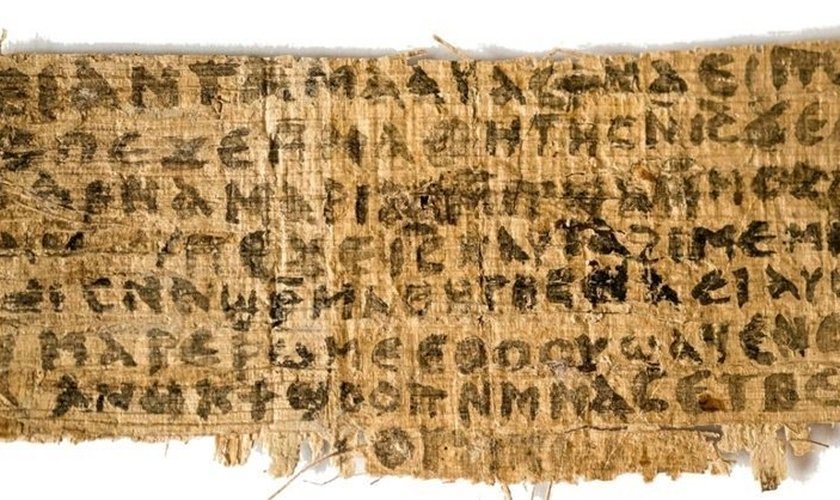 ⲉⲓ ⲁⲛ ⲧⲁⲙⲁⲁⲩ ⲁⲥϯ ⲛⲁⲉⲓ
ⲡⲉϫⲉ ⲙⲙⲁⲑⲏⲧⲏⲥ ⲛⲓⲥ ϫⲉ
ⲁⲣⲛⲁ ⲙⲁⲣⲓⲁⲙ
ⲡⲉϫⲉ ⲓⲥ ⲛⲁⲩ ⲧⲁϩⲓⲙⲉ ⲙⲛ
ⲥⲛⲁϣⲣⲙⲁⲑⲏⲧⲏⲥ ⲛⲁⲉⲓ ⲁⲩ
ⲙⲁⲣⲉⲣⲱⲙⲉ ⲉⲑⲟⲟⲩ ϣⲁϥⲉ ⲛⲉ
ⲁⲛⲟⲕ ϯϣⲟⲟⲡ ⲛⲙⲙⲁⲥ ⲉⲧⲃⲉ